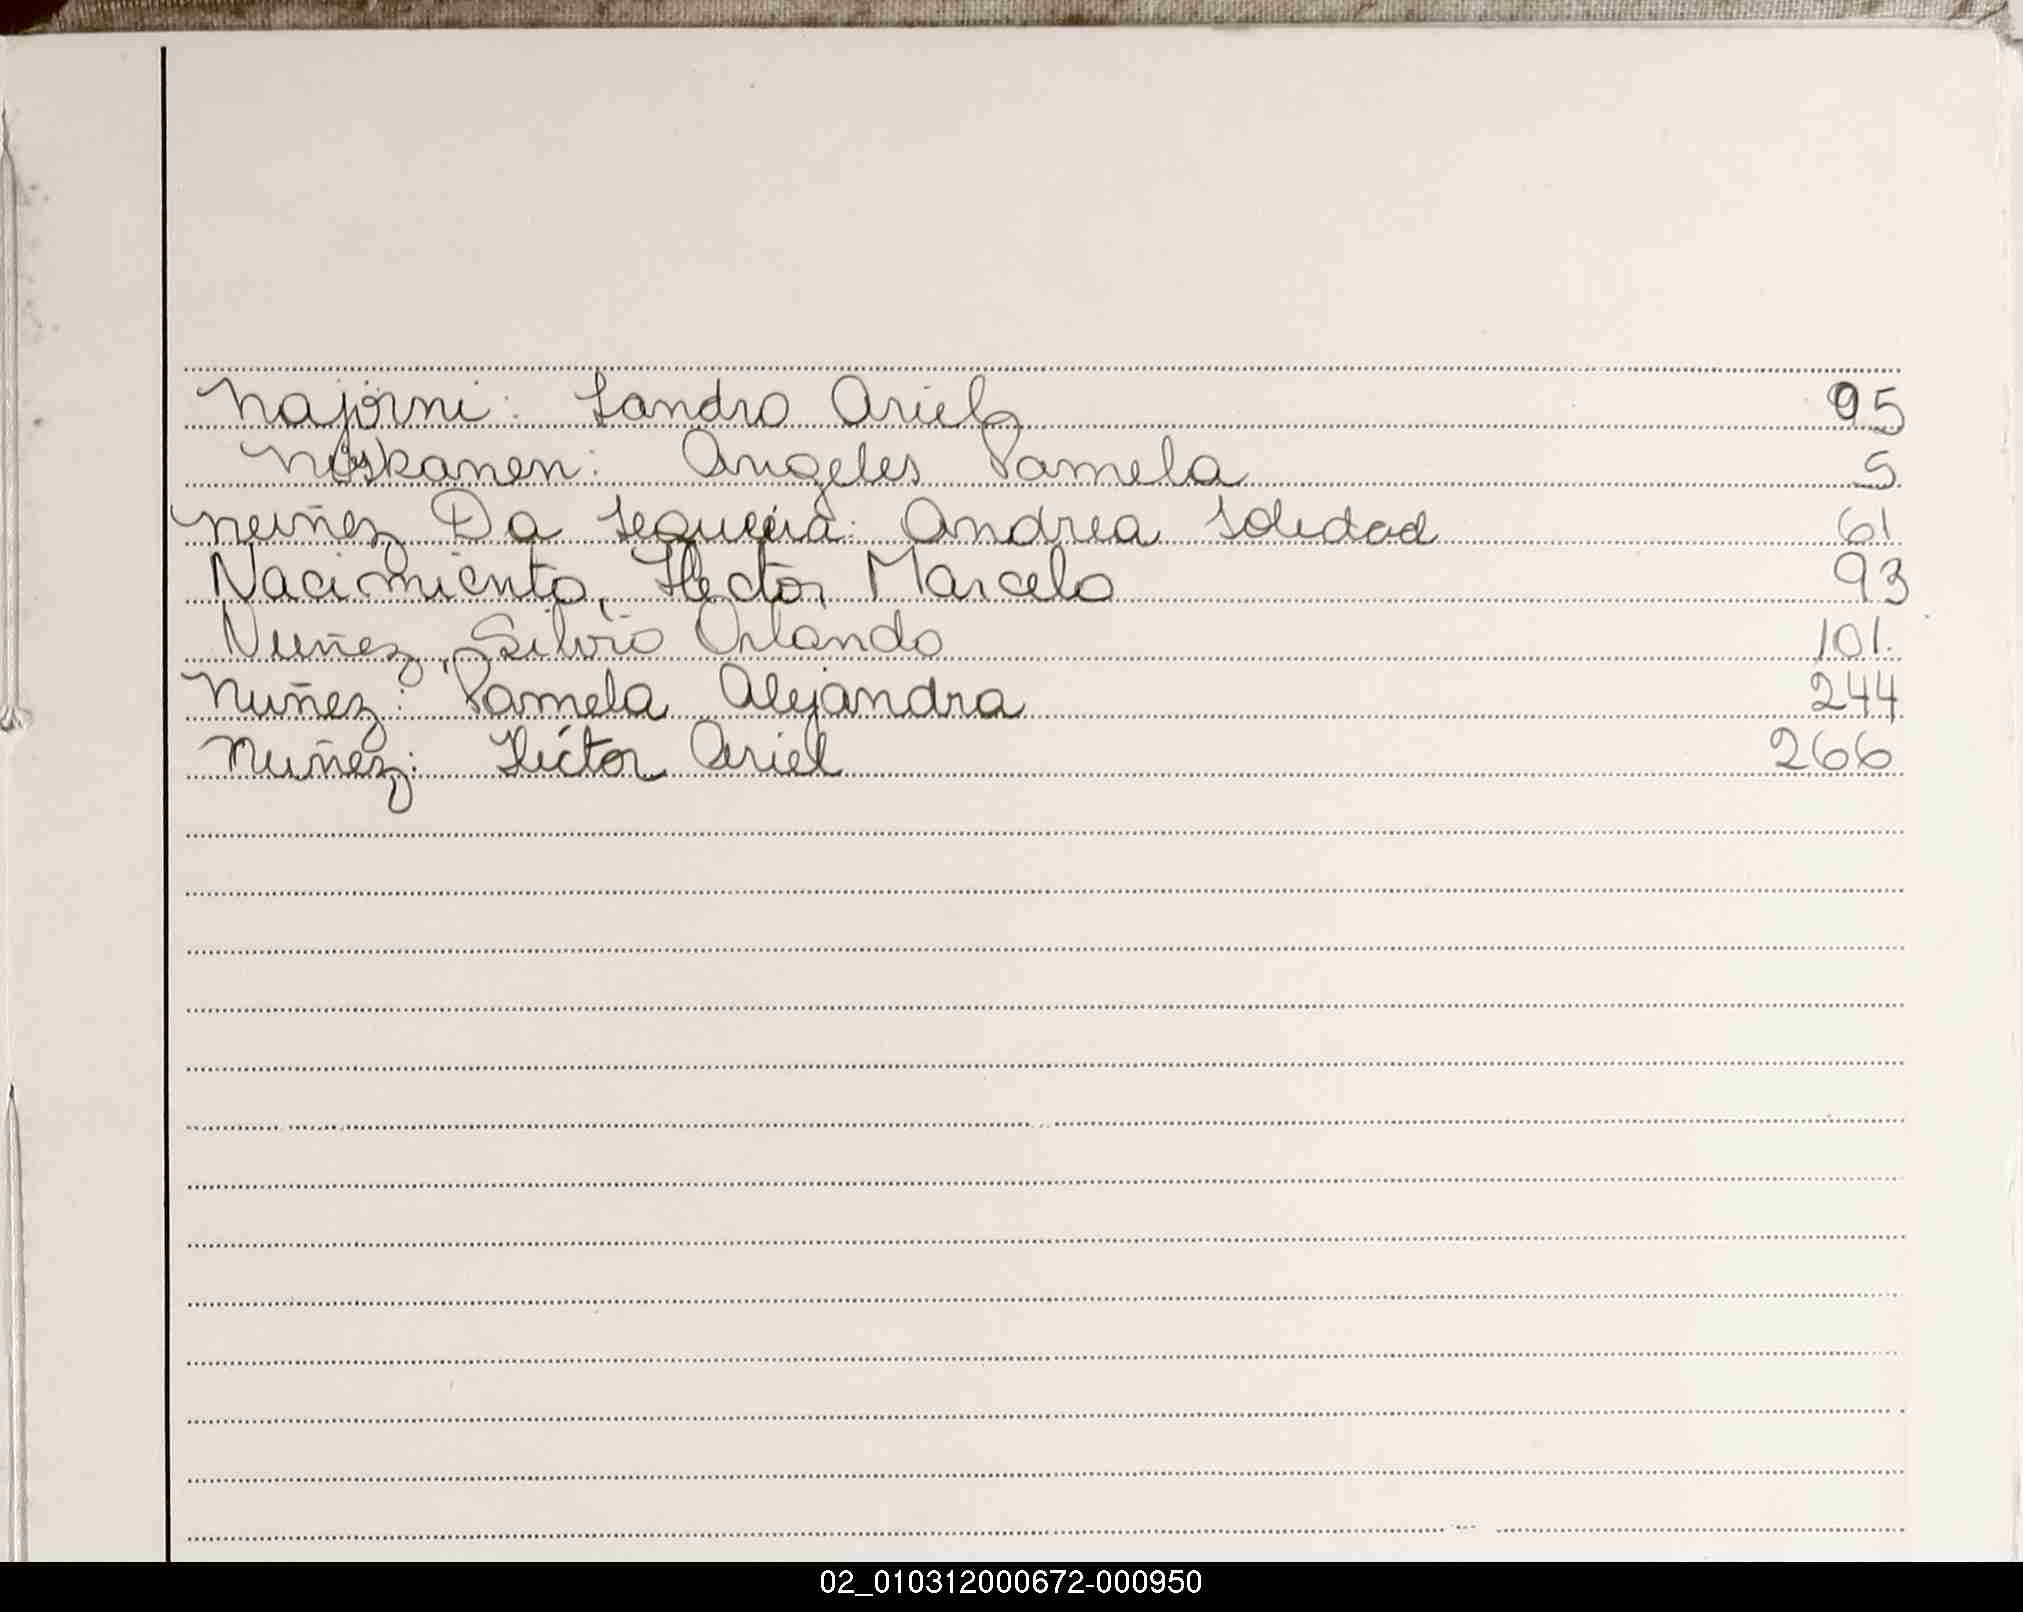 Najorni: Sandro Ariel 95
Noskanen: Angeles Pamela 5
Nuñez Da Sequeira: Andrea Soledad 61
Nacimiento, Hector Marcelo 93
Nuñez, Silvio Orlando 101.
Nuñez: Pamela Alejandra 244
Nuñez: Héctor Ariel 266
02_010312000672-000950